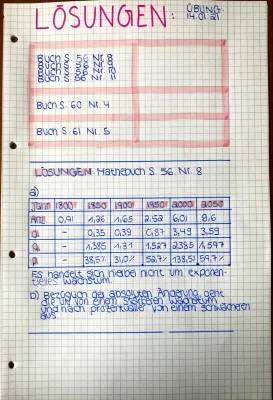 LÖSUNGEN:
ÜBUNG
14.01.21
Buch S. 56 Nr. 8
Buch S. 56 Nr. 9
Buch S. 56 Nr. 10
Buch S. 56 Nr. 11
Buch S. 60 Nr. 4
Buch S. 61 Nr. 5
LÖSUNGEN: Mathebuch S. 56. Nr. 8
a)
Jahr 1800 1850 1900 1950 2000 2050
Anz 0,91 1,26 1,65 2.52 6,01 9,6
d - 0,35 0,39 0,87 3,49 3,59
q - 1,385 1,31 1,527 2,385 1,597
p - 38,5% 31,0% 52,7% 138,5% 59,7%
Es handelt sich hierbei nicht um exponen-
tielles Wachstum.
b) Bezüglich der absoluten Änderung geht
die UN von einem stärkeren Wachstum
und nach prozentualer von einem schwächeren
aus.